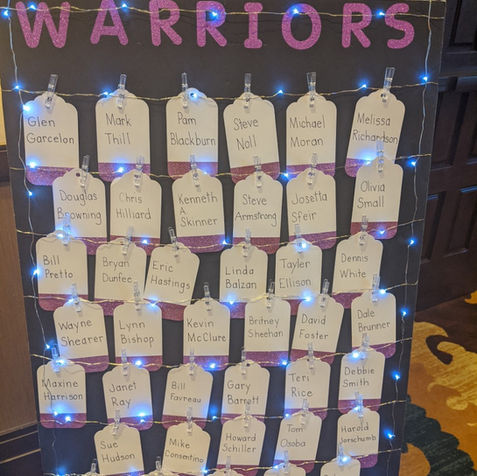 WARRIORS
Glen Garcelon
Mark Thill
Pam Blackburn
Steve Noll
Michael Moran
Melissa Richardson
Douglas Browning
Chris Hilliard
Kenneth A Skinner
Steve Armstrong
Josetta Sfeir
Olivia Small
Bill Pretto
Bryan Dunfee
Eric Hastings
Linda Balzan
Tayler Ellison
Dennis White
Wayne Shearer
Lynn Bishop
Kevin McClure
Britney Sheehan
David Foster
Dale Brunner
Maxine Harrison
Janet Ray
Bill Favreau
Gary Barrett
Teri Rice
Debbie Smith
Sue Hudson
Mike Consentino
Howard Schiller
Tom Osoba
Harold Jorschumb